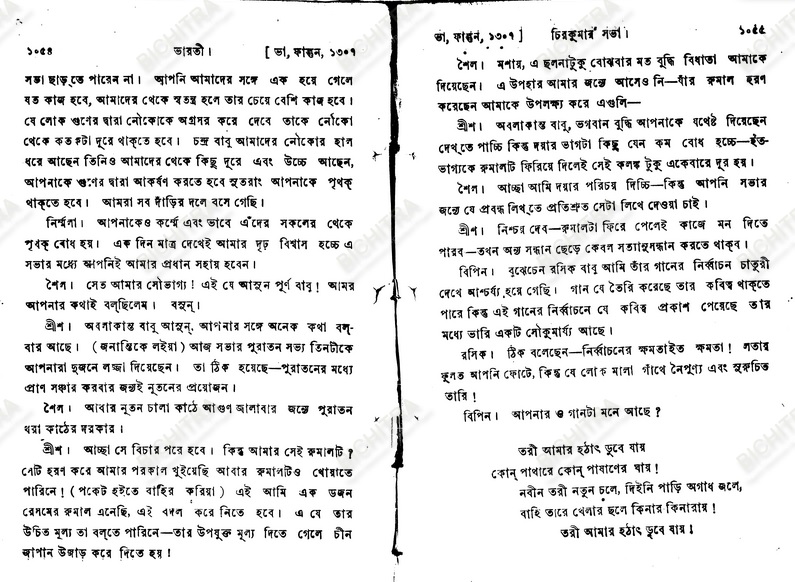 ১০৫৪ ভারতী। [ ভা, ফাল্গুন, ১৩০৭
সভা ছাড়তে পারেন না। আপনি আমাদের সঙ্গে এক হয়ে গেলে
যত কাজ হবে, আমাদের থেকে স্বতন্ত্র হলে তার চেয়ে বেশি কাজ হবে।
যে লোক গুণের দ্বারা নৌকোকে অগ্রসর করে দেবে তাকে নৌকো
থেকে কতকটা দূরে থাক্‌তে হবে। চন্দ্র বাবু আমাদের নৌকোর হাল
ধরে আছেন তিনিও আমাদের থেকে কিছু দূরে এবং উচ্চে আছেন,
আপনাকে গুণের দ্বারা আকর্ষণ করতে হবে সুতরাং আপনাকে পৃথক্
থাক্‌তে হবে। আমরা সব দাঁড়ির দলে বসে গেছি।
নির্ম্মলা। আপনাকেও কর্ম্মে এবং ভাবে এঁদের সকলের থেকে
পৃথক্ বোধ হয়। এক দিন মাত্র দেখেই আমার দৃঢ় বিশ্বাস হচ্চে এ
সভার মধ্যে আপনিই আমার প্রধান সহায় হবেন।
শৈল। সেত আমার সৌভাগ্য! এই যে আসুন পূর্ণ বাবু! আমরা
আপনার কথাই বল্‌ছিলেম। বসুন্।
শ্রীশ। অবলাকান্ত বাবু আসুন্, আপনার সঙ্গে অনেক কথা বল্-
বার আছে। (জনান্তিকে লইয়া) আজ সভার পুরাতন সভ্য তিনটীকে
আপনারা দুজনে লজ্জা দিয়েছেন। তা ঠিক হয়েছে—পুরাতনের মধ্যে
প্রাণ সঞ্চার করবার জন্যই নূতনের প্রয়োজন।
শৈল। আবার নূতন চালা কাঠে আগুণ জালাবার জন্যে পুরাতন
ধরা কাঠের দরকার।
শ্রীশ। আচ্ছা সে বিচার পরে হবে। কিন্তু আমার সেই রুমালটি?
সেটি হরণ করে আমার পরকাল খুইয়েছি আবার রুমালটিও খোয়াতে
পারিনে! (পকেট হইতে বাহির করিয়া) এই আমি এক ডজন
রেসমের রুমাল এনেছি, এই বদল করে নিতে হবে। এ যে তার
উচিত মূল্য তা বল্‌তে পারিনে—তার উপযুক্ত মূল্য দিতে গেলে চীন
জাপান উজাড় করে দিতে হয়!
ভা, ফাল্গুন, ১৩০৭ ] চিরকুমার সভা। ১০৫৫
শৈল। মশায়, এ ছলনাটুকু বোঝবার মত বুদ্ধি বিধাতা আমাকে
দিয়েছেন। এ উপহার আমার জন্যে আসেও নি—যাঁর রুমাল হরণ
করেছেন আমাকে উপলক্ষ্য করে এগুলি—
শ্রীশ। অবলাকান্ত বাবু, ভগবান বুদ্ধি আপনাকে যথেষ্ট দিয়েছেন
দেখ্‌তে পাচ্চি কিন্তু দয়ার ভাগটা কিছু যেন কম বোধ হচ্চে—হত-
ভাগ্যকে রুমালটি ফিরিয়ে দিলেই সেই কলঙ্ক টুকু একেবারে দূর হয়।
শৈল। আচ্ছা আমি দয়ার পরিচয় দিচ্চি—কিন্তু আপনি সভার
জন্যে যে প্রবন্ধ লিখ্‌তে প্রতিশ্রুত সেটা লিখে দেওয়া চাই।
শ্রীশ। নিশ্চয় দেব—রুমালটা ফিরে পেলেই কাজে মন দিতে
পারব—তখন অন্য সন্ধান ছেড়ে কেবল সত্যানুসন্ধান করতে থাক্‌ব।
বিপিন। বুঝেচেন রসিক বাবু আমি তাঁর গানের নির্ব্বাচন চাতুরী
দেখে আশ্চর্য্য হয়ে গেছি। গান যে তৈরি করেছে তার কবিত্ব থাকতে
পারে কিন্তু এই গানের নির্ব্বাচনে যে কবিত্ব প্রকাশ পেয়েছে তার
মধ্যে ভারি একটি সৌকুমার্য্য আছে।
রসিক। ঠিক বলেছেন—নির্ব্বাচনের ক্ষমতাইত ক্ষমতা! লতায়
ফুলত আপনি ফোটে, কিন্তু যে লোক মালা গাঁথে নৈপুণ্য এবং সুরুচিত
তারি!
বিপিন। আপনার ও গানটা মনে আছে?
তরী আমার হঠাৎ ডুবে যায়
কোন্ পাথারে কোন্ পাষাণের ঘায়!
নবীন তরী নতুন চলে, দিইনি পাড়ি অগাধ জলে,
বাহি তারে খেলার ছলে কিনার কিনারায়!
তরী আমার হঠাৎ ডুবে যায়!